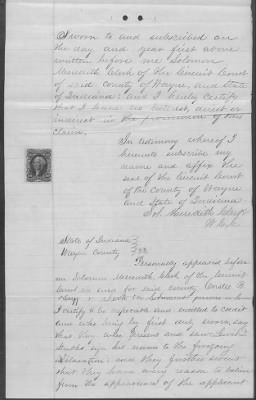 Sworn to and subscribed on
the day and year first above
written before me Solomon
Meredith Clerk of the Circuit Court
of said county of Wayne, and State
of Indiana; and I hereby certify
that I have no interest, direct or
indirect in the prosecution of this
Claim.
In testimony whereof I
hereunto subscribe my
name and affix the
seal of the Circuit Court
of the County of Wayne
and State of Indiana
Sol. Meredith Clerk
State of Indiana
Wayne County } SS.
Personally appeared before
me Solomon Meredith Clerk of the Circuit
Court in and for said county B
I certify to be respectable and entitled to credit
and who being by first duly sworn, say
that they were present and saw
sign his name to the foregoing
declaration; and they further swear
that they have every reason to believe
from the appearance of the applicant